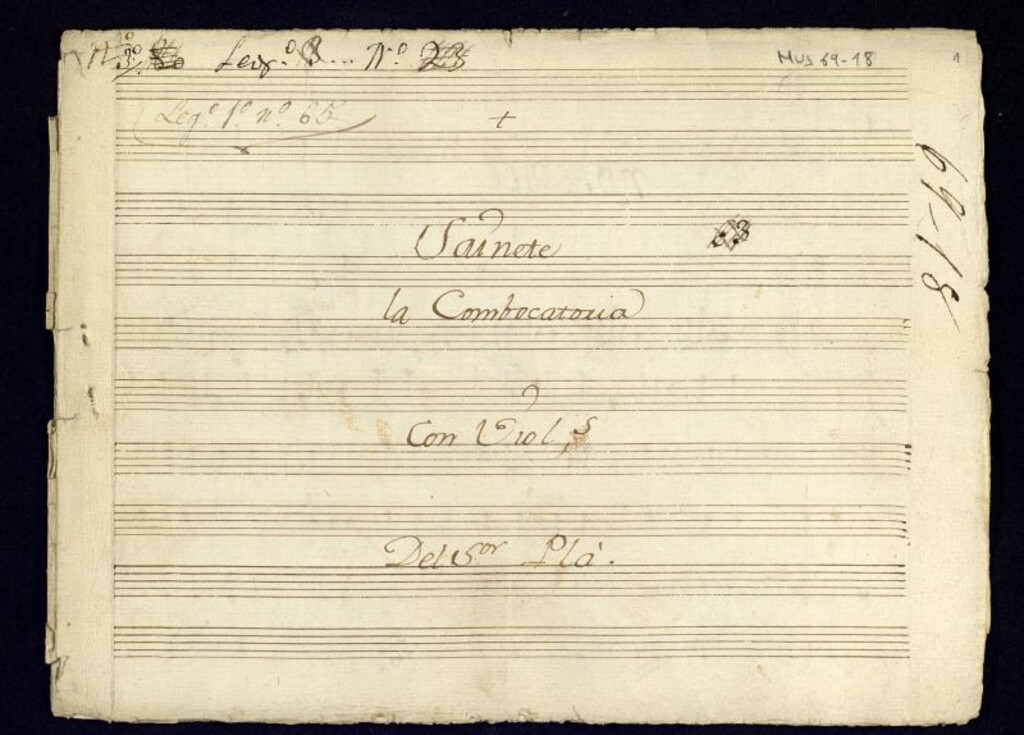 Leg.º 3... Nº 28
MUS 69-18
1
Leg.º 1.º nº 65
+
69-18
Saınete
la Combocatoria
Con Viol,s
Del Sor Plà.